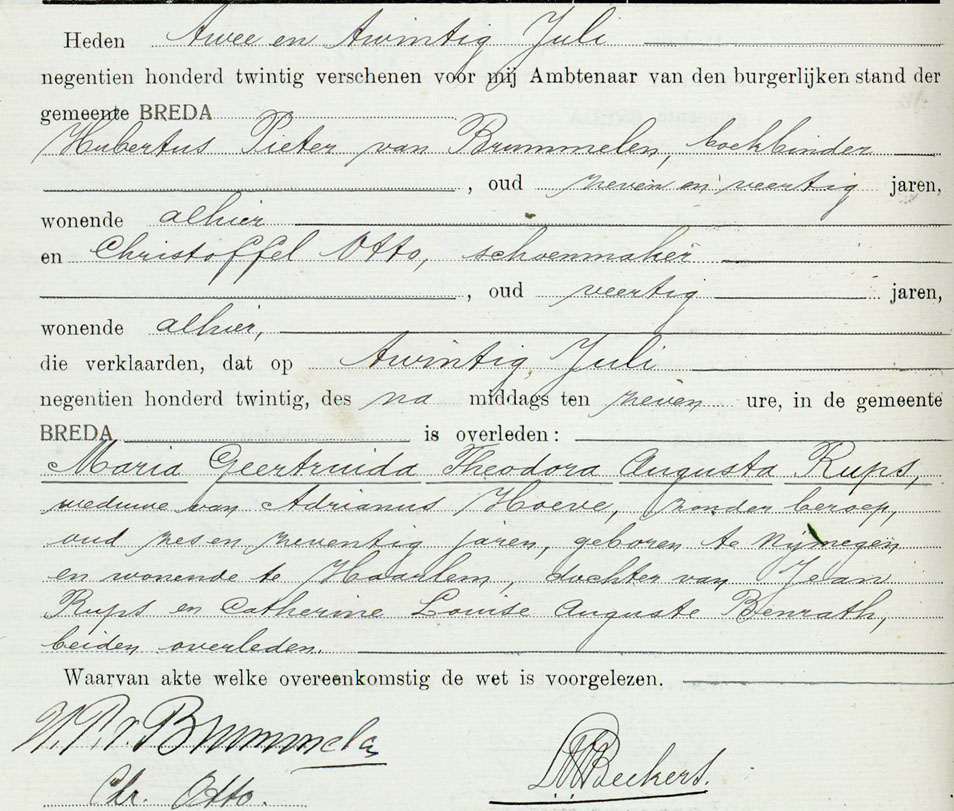 Heden twee en twintig Juli
negentien honderd twintig verschenen voor mij Ambtenaar van den burgerlijken stand der
gemeente BREDA
Hubertus Pieter van Brummelen, boekbinder
, oud zeven en veertig jaren,
wonende alhier
en Christoffel Otto, schoenmaker
, oud veertig jaren,
wonende alhier,
die verklaarden, dat op twintig Juli
negentien honderd twintig, des na middags ten zeven ure, in de gemeente
BREDA is overleden:
Maria Geertruida Theodora Augusta Rups,
weduwe van Adrianus Hoeve, zonder beroep,
oud zes en zeventig jaren, geboren te Nijmegen
en wonende te Haarlem, dochter van Jean
Rups en Catherine Louise Auguste Benrath,
beiden overleden.
Waarvan akte welke overeenkomstig de wet is voorgelezen.
H. P. v. Brummelen
Chr. Otto.
Beckers.